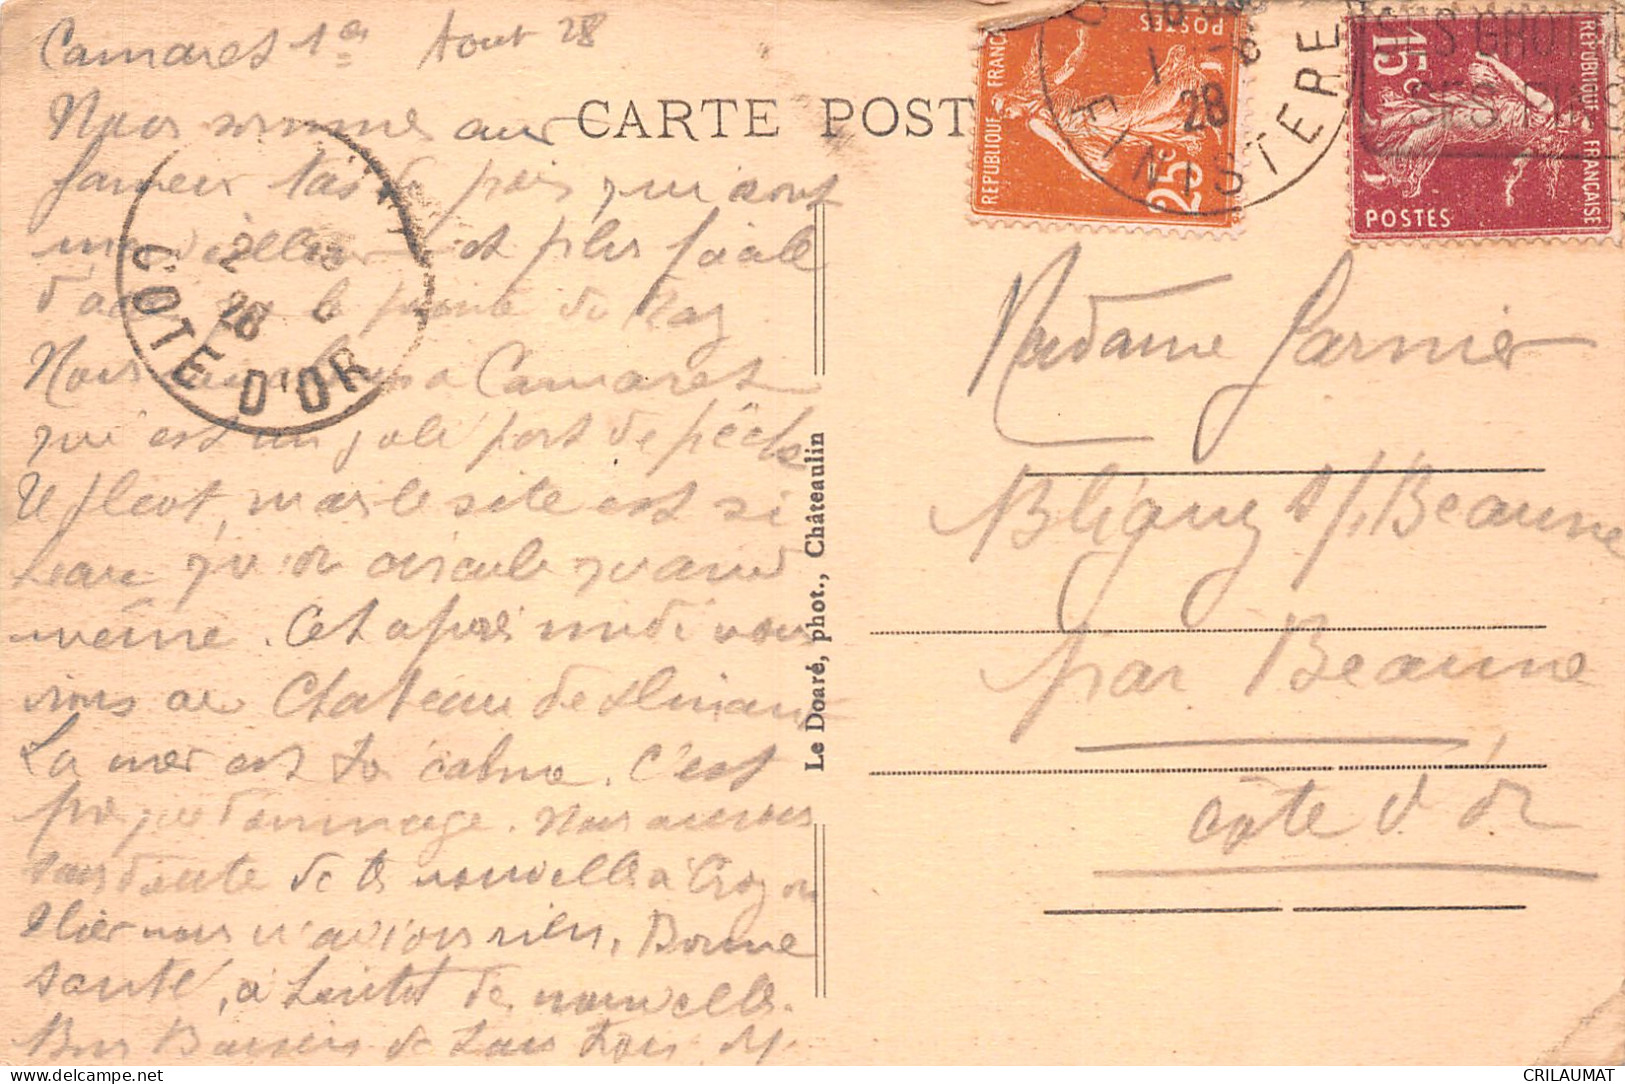 Camaret 1er Aout 28
Nous sommes aux
fameux tas de pois, qui sont
merveilleux et plus facile
d'accès que la pointe du Raz
Nous à Camaret
qui est un joli port de pêche
Il pleut, mais le site est si
beau qu'on circule quand
même. Cet après midi nous
irons au Chateau de Dinan
La mer est si calme. C'est
presque dommage. Nous aurons
sans doute de tes nouvelles à Crozon
Hier nous n'avions rien. Bonne
santé, à bientôt de nouvelles.
Bons Baisers de tous trois. M.
CARTE POST
Le Doaré, phot., Châteaulin
REPUBLIQUE FRANCA
POSTES
25c
REPUBLIQUE FRANÇAISE
POSTES
15c
28
FINISTERE
2
28
COTE D'OR
Madame Garnier
Bligny s/s Beaune
par Beaune
Côte d'Or
CRILAUMAT